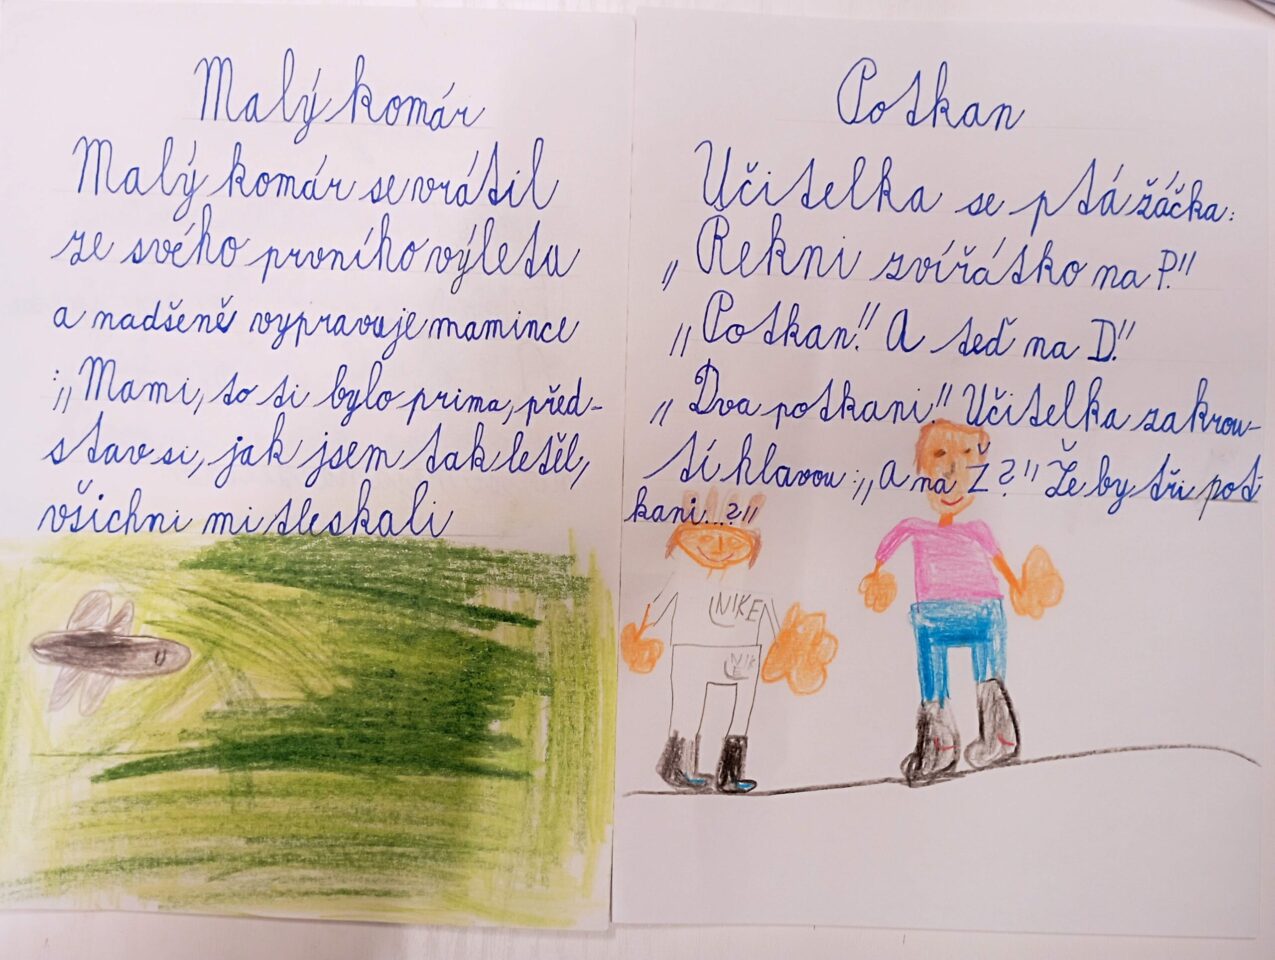 Malý komár
Malý komár se vrátil
ze svého prvního výletu
a nadšeně vypravuje mamince
:,,Mami, to ti bylo prima, před-
stav si, jak jsem tak letěl,
všichni mi tleskali
Potkan
Učitelka se ptá žáčka:
,,Řekni zvířátko na P."
,,Potkan!" A teď na D."
,,Dva potkani!" Učitelka zakrou-
tí hlavou:,,A na Ž?" Že by tři pot
kani...?"
NIKE
NIKE